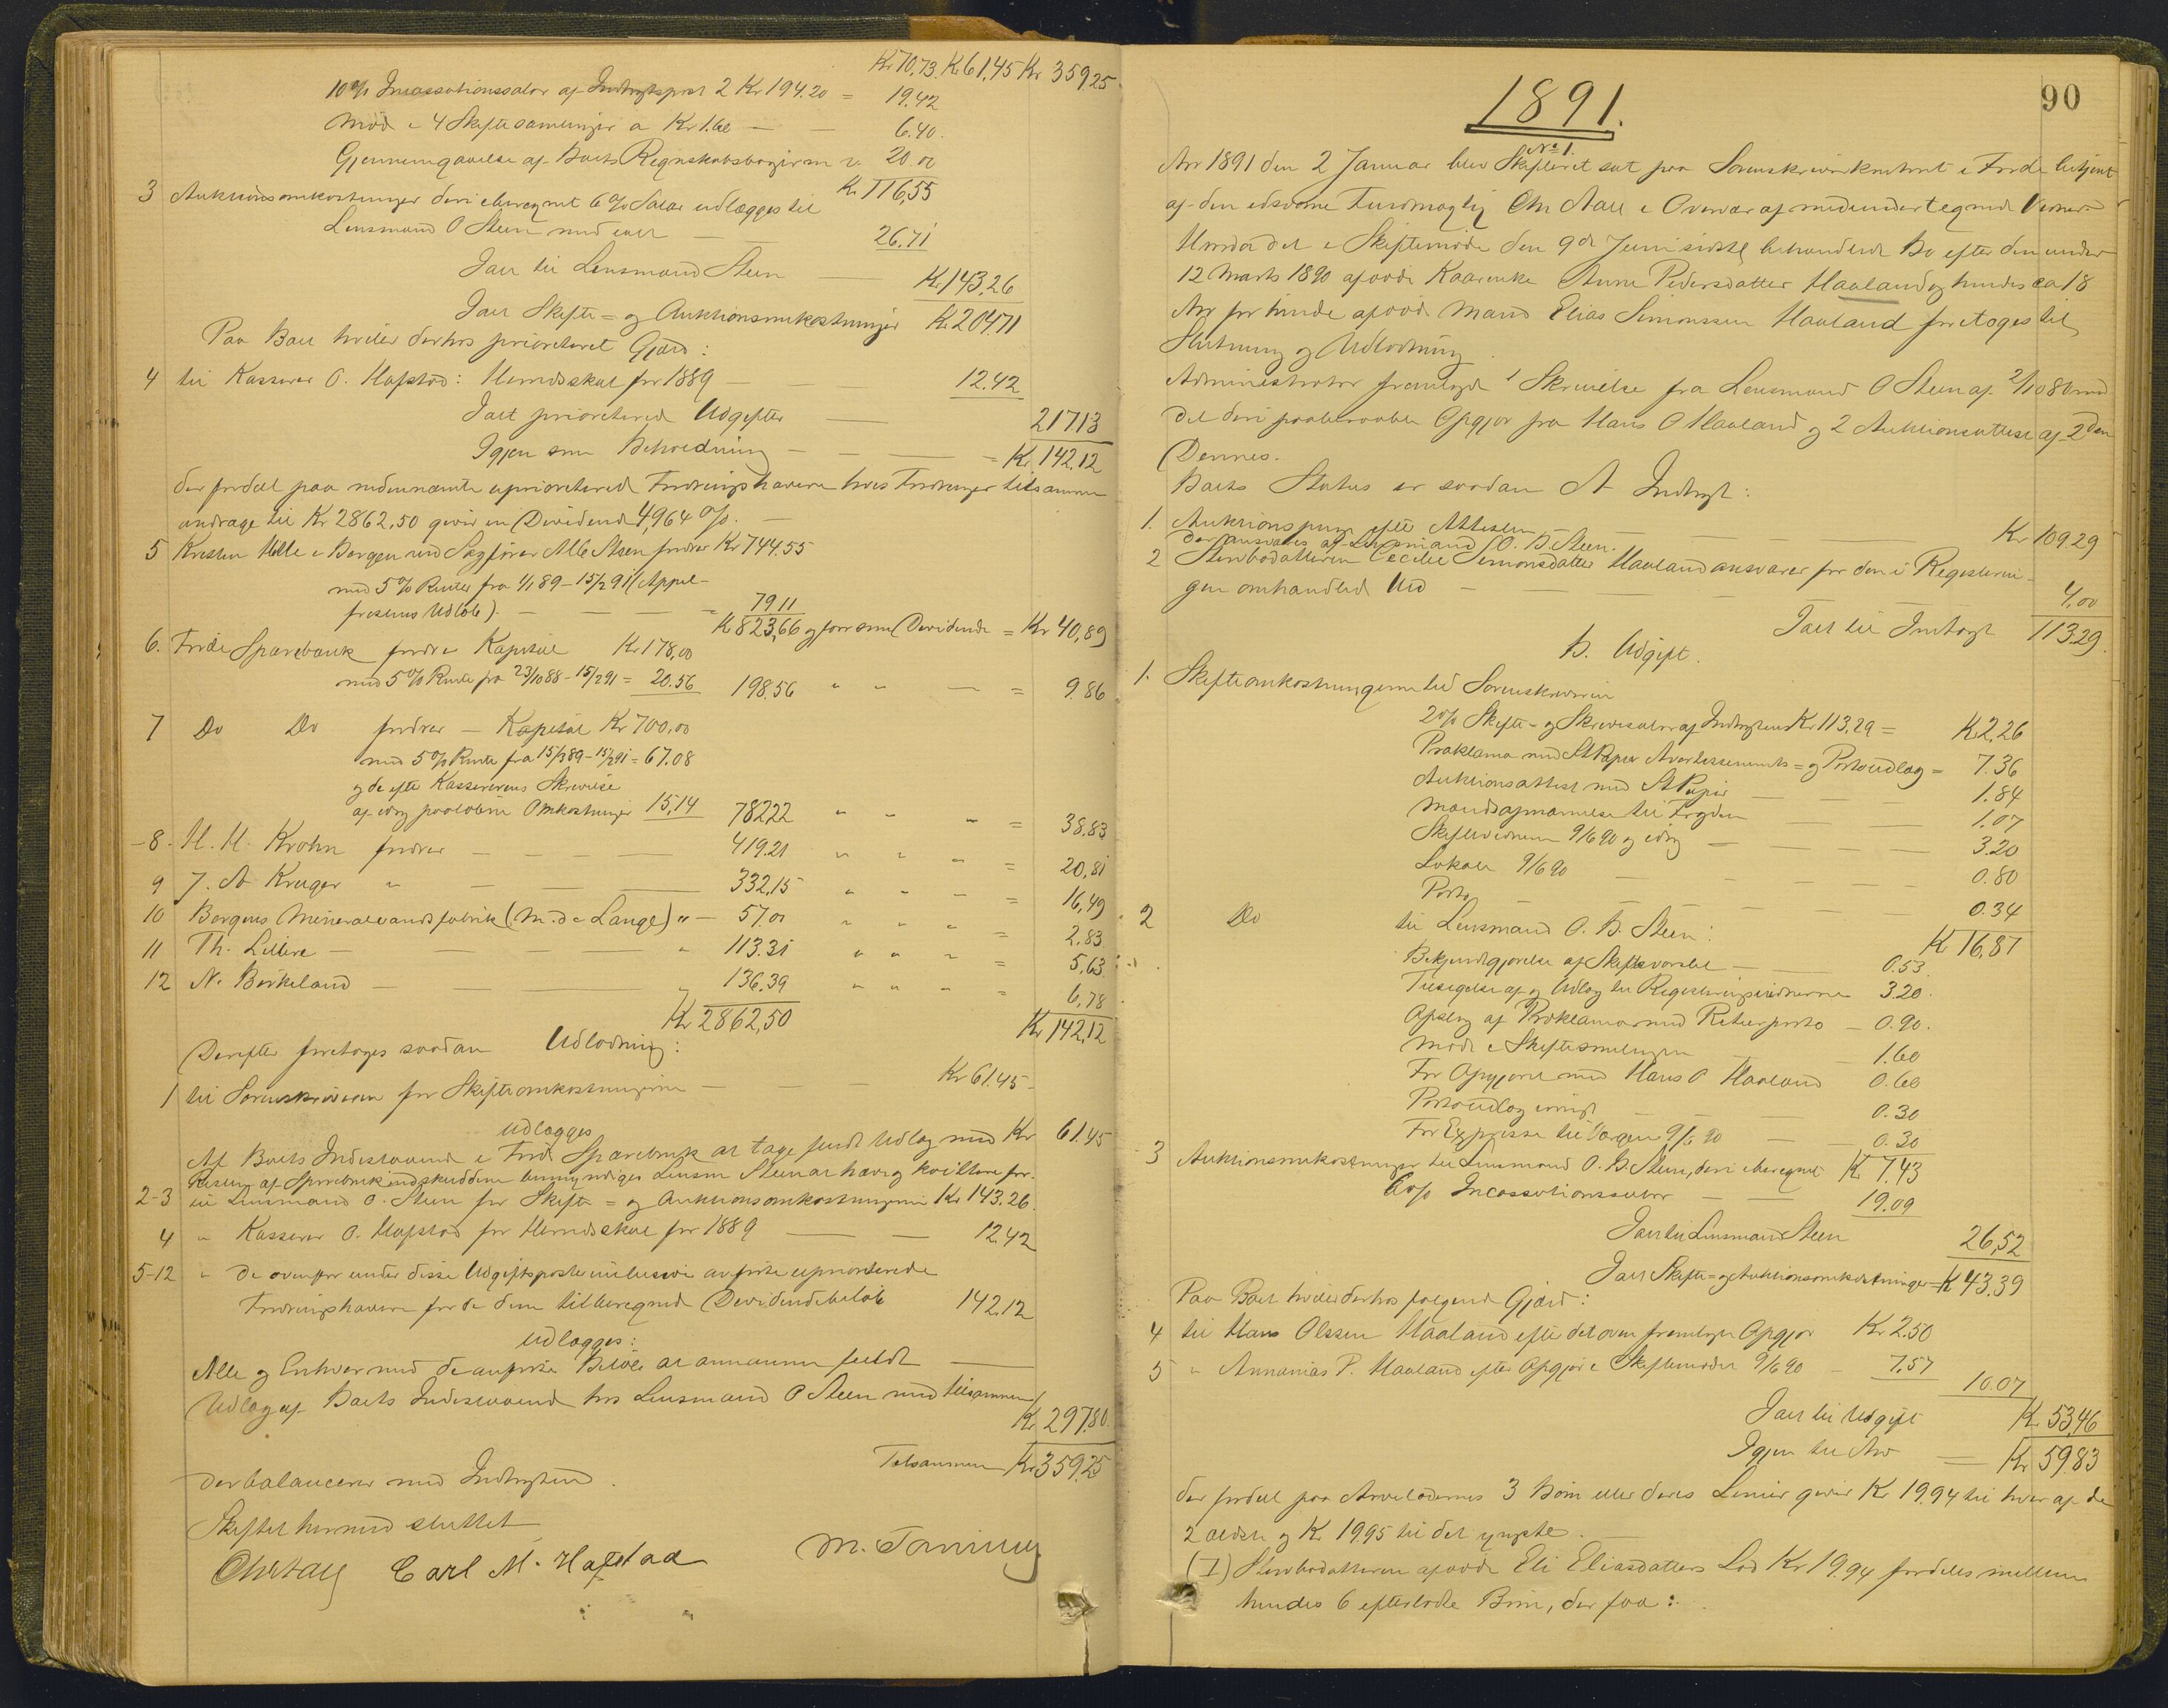 Kr 70,73. Kr 61,45 Kr 359,25.
10% Incassationssalær af Indtægtspost 2 Kr 194.20 = 19.42
Møde i 4 Skiftesamlinger a Kr 1.60 — — 6.40.
Gjennemgaaelse af Boets Regnskabsbøger m v. 20.00
Kr 116,55
3 Auktionsomkostninger deri iberegnet 6% Salær udlægges til
Lensmand O Steen med ialt — — 26.71
Ialt til Lensmand Steen — Kr 143,26
Ialt Skifte- og Auktionsomkostninger Kr 204,71
Paa Boet hviler derhos prioriteret Gjæld:
4 til Kasserer O. Hafstad: Herredsskat for 1889 — — 12.42
Ialt prioriterede Udgifter — 217.13
Igjen som Beholdning — — — = Kr. 142.12
der fordelt paa nedennævnte uprioriterede Fordringshavere hvis Fordringer tilsammen
andrage til Kr 2862,50 giver en Dividende 4,964 %. —
5 Kristen Helle i Bergen ved Sagfører Alb Steen fordrer Kr 744.55
med 5% Renter fra 1/1 89 - 15/2 91 (Appel-
fristens Udløb). — — — = 79 11
Kr 823,66 og faar som Dividende = Kr 40,89
6. Førde Sparebank fordrer Kapital Kr 178,00
med 5% Rente fra 23/10 88 - 15/2 91 = 20.56 198.56 " " — = 9.86
7 Do Do fordrer — Kapital Kr 700,00
med 5% Rente fra 15/3 89 - 15/2 91 = 67.08
og de efter Kassererens Skrivelse
af idag paaløbne Omkostninger 15,14 782,22 " " " = 38.83
-8- H. H. Krohn fordrer — — — — 419.21 " " " = 20,81
9 J. A Kruger " — — 332,15 " " — = 16,49
10 Bergens Mineralvandsfabrik (M. de Lange) " — 57.00 " " " = 2.83
11 Th. Lillere — — — " 113.31 " " " = 5,63
12 N. Birkeland — — — " 136,39 " " " = 6,78
Kr 2862,50 Kr 142,12
Derefter foretoges saadan Udlodning:
1 til Sorenskriveren for Skifteomkostningerne — — — Kr 61.45 —
udlægges
Af Boets Indestaaende i Førde Sparebank at tage fuldt Udlæg med Kr 61.45
Resten af Sparebankindskuddene bemyndiges Lensm Steen at hæve og kvittere for.
2-3 til Lensmand O. Steen for Skifte- og Auktionsomkostningerne Kr 143.26.
4 " Kasserer O. Hafstad for Herredsskat for 1889 — — 12.42
5-12 " de ovenfor under disse Udgiftsposter inclusive anførte uprioriterede
Fordringshavere for de dem tilberegnede Dividendebeløb 142,12
udlægges:
Alle og Enhver med de anførte Beløb at annamme fuldt —
Udlæg af Boets Indestaaende hos Lensmand O Steen med tilsammen
Kr 297,80.
Tilsammen Kr 359,25
der balancerer med Indtægten.
Skiftet hermed sluttet
Chr Aall Carl M. Hafstad
90
1891.
No 1.
Aar 1891 den 2 Januar blev Skifteret sat paa Sorenskriverkontoret i Førde betjent
af den edsvorne Fuldmægtig Chr Aall i Overvær af medundertegnede Vidner
Hvorda det i Skiftemøde den 9de Juni sidstl behandlede Bo efter den under
12 Marts 1890 afdøde Kaarenke Anne Pedersdatter Haaland og hendes ca 18
Aar før hende afdøde Mand Elias Simonssen Haaland foretoges til
Slutning og Udlodning.
Administrator fremlagde 1 Skrivelse fra Lensmand O Steen af med
det deri paaberaabte Opgjør fra Hans O Haaland og 2 Auktionsattest af 2den
Dennes.
Boets Status er saadan A Indtægt:
1. Auktionspenge efter Attesten —
der ansvares af Lensmand O. B. Steen. — — Kr 109.29
2 Stervbodatteren Cecilie Simonsdatter Haaland ansvarer for den i Registerin-
gen omhandlede — — — — — 4,00
Ialt til Indtægt 113.29.
B. Udgift.
1. Skifteomkostningerne til Sorenskriveren
2% Skifte- og Skriversalær af Indtægtens Kr 113,29 = Kr 2,26
Proklama med St Papir Avertissements- og Portoudlæg = 7.36
Auktionsattest med St Papir — — — 1.84
Mandsafmaanelse til Fogden — — 1.07
Skiftevidnerne 9/6 90 og idag — — — — 3.20
Lokale 9/6 90 — — — — 0.80
Porto — — — — — 0.34
Kr 16,87
2 Do til Lensmand O. B. Steen:
Bekjendtgjørelse af Skiftevarsel — — 0.53.
Tilsigelse af og Udlæg til Registreringsvidnerne 3.20.
Opslag af Proklama med Returporto — 0.90.
Møde i Skiftesamlingen — — 1.60
For Opgjøret med Hans O Haaland 0.60
Portoudlæg — — — 0.30
For Expresse til 9/6 90 — — 0.30
Kr 7,43
3 Auktionsomkostninger til Lensmand O. B. Steen, deri iberegnet
6% Incassationssalær — — 19.09
Ialt til Lensmand Steen 26,52
Ialt Skifte- og Auktionsomkostninger = Kr 43,39
Paa Boet hviler derhos følgende Gjæld:
4 til Hans Olssen Haaland efter det oven fremlagte Opgjør Kr 2.50
5 " Annanias P. Haaland efter Opgjør i Skiftemødet 9/6 90 — 7,57
10.07
Ialt til Udgift Kr. 53,46
Igjen til Arv — Kr 59.83
der fordelt paa Arveladernes 3 Børn eller deres Linier giver Kr 19.94 til hver af de
2 ældste og Kr 19.95 til det yngste. —
(I) Stervbodatteren afdøde Eli Eliasdatters Lod Kr 19.94 fordeles mellem
hendes 6 efterladte Børn, der faa: